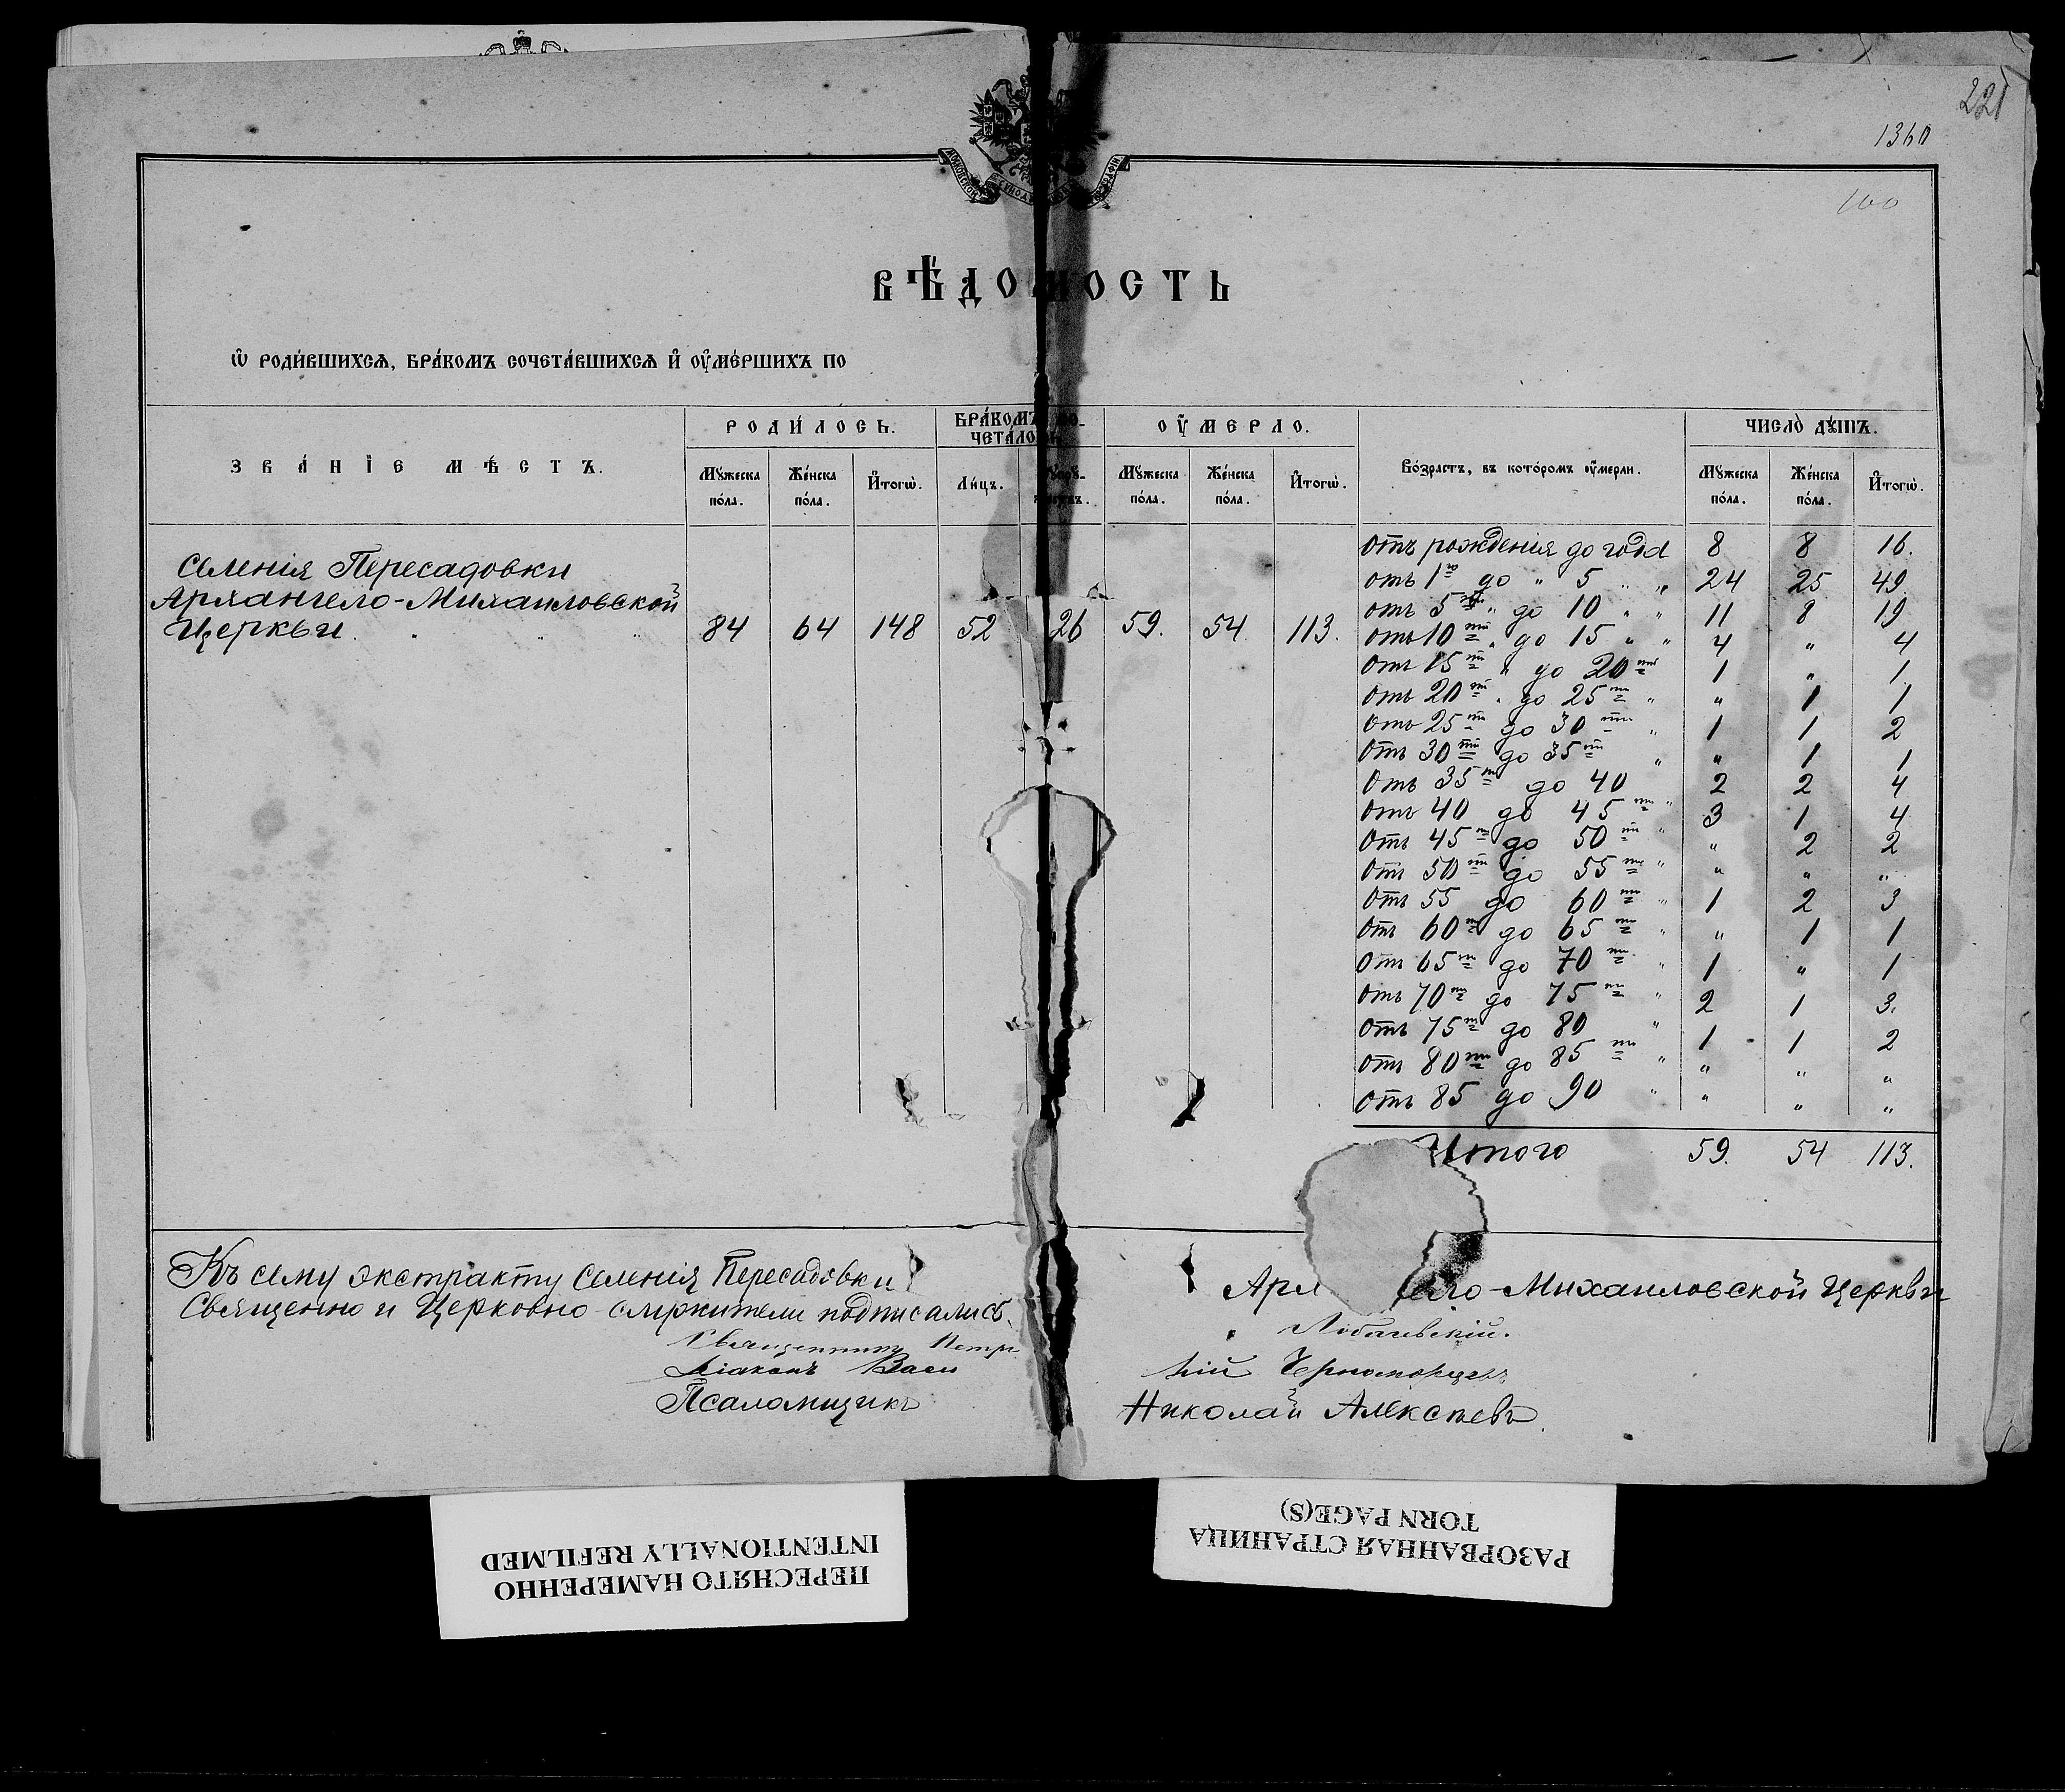 221
1360
100
ВѢДОМОСТЬ
Ѡ РОДИ́ВШИХСѦ, БРА́КОМЪ СОЧЕТА́ВШИХСѦ И҆ ОУ҆МЕ́РШИХЪ ПО
ЗВА́НІЕ МѢ́СТЪ.
РОДИ́ЛОСЬ.
БРА́КОМЪ СО-
ЧЕТА́ЛОСЬ.
ОУ҆МЕРЛО.
Во́зрастъ, въ кото́ромъ оу҆мерли.
ЧИСЛО̀ ДꙊШЪ.
Мꙋжеска пóла.
Же́нска пóла.
И҆тогѡ̀.
Ли́цъ.
Мꙋжеска пóла.
Же́нска пóла.
И҆тогѡ̀.
Мꙋжеска пóла.
Же́нска пóла.
И҆тогѡ̀.
Селенія Пересадовки
Архангело-Михаиловской
Церкви. " " " 84 64 148 52 26 59. 54 113.
отъ рожденія до года 8 8 16.
отъ 1го до " 5 " " 24 25 49.
отъ 5ти " до 10 " " 11 8 19
отъ 10ти " до 15 " " 4 " 4
отъ 15ти " до 20ти 1 " 1.
отъ 20ти " до 25ти " " 1 1
отъ 25ти до 30ти " 1 1 2
отъ 30ти до 35ти " " 1 1
отъ 35ти до 40 2 2 4
отъ 40 до 45ти " 3 1 4
отъ 45ти до 50ти " " 2 2
отъ 50ти до 55ти " " " "
отъ 55 до 60ти " 1 2 3
отъ 60ти до 65ти " " 1 1
отъ 65ти до 70ти " 1 " 1
отъ 70ти до 75ти " 2 1 3.
отъ 75ти до 80 " 1 1 2
отъ 80ти до 85ти " " " "
отъ 85 до 90 " " " "
Итого 59. 54 113.
Къ сему экстракту Селенія Пересадовки Арх ело-Михаиловской Церкви
Священно и Церковно-служители подписались.
Священникъ Петръ
Діаконъ Васи лій Черноморцевъ
Псаломщикъ Николай Алексѣевъ
ПЕРЕСНЯТО НАМЕРЕННО
INTENTIONALLY REFILMED
РАЗОРВАННАЯ СТРАНИЦА
TORN PAGE(S)